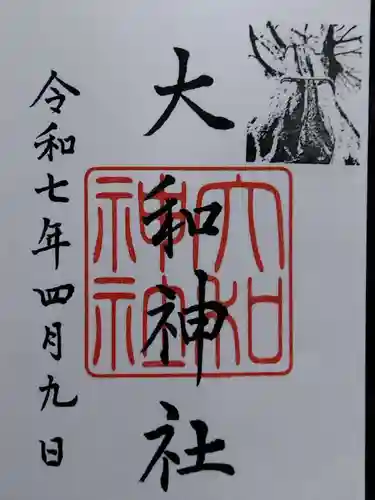 大和神社
令和七年四月九日
大和
神社